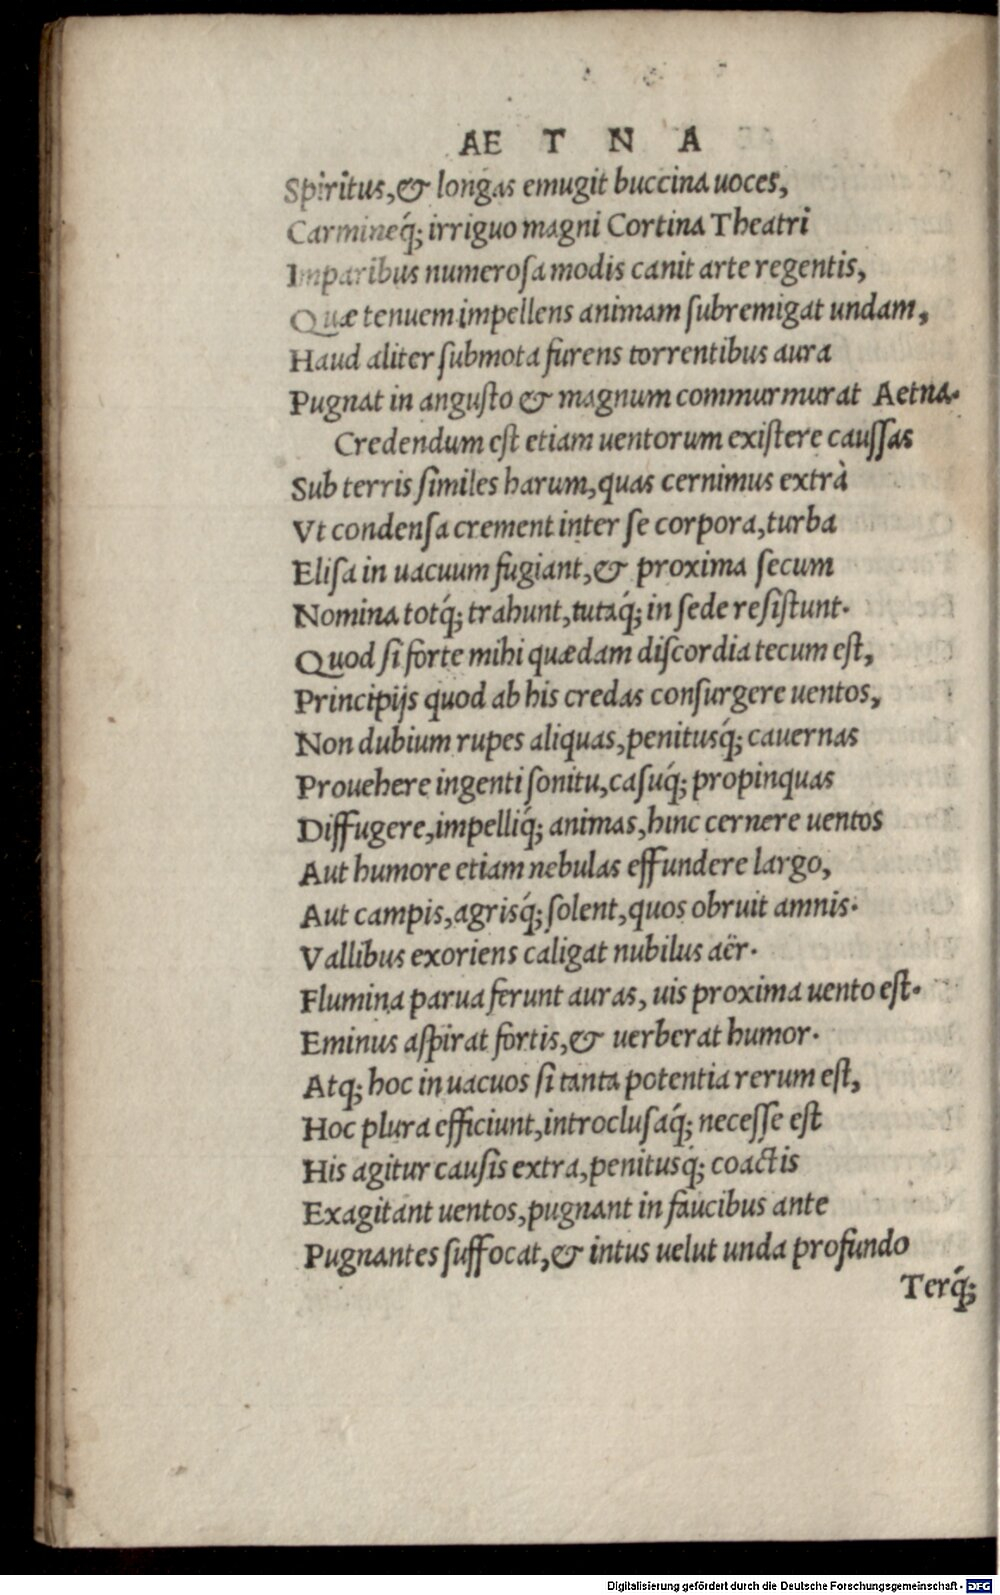 AE T N A
Spiritus,& longas emugit buccina uoces,
Carmineq́; irriguo magni Cortina Theatri
Imparibus numerosa modis canit arte regentis,
Quæ tenuem impellens animam subremigat undam,
Haud aliter submota furens torrentibus aura
Pugnat in angusto & magnum commurmurat Aetna.
Credendum est etiam uentorum existere caussas
Sub terris similes harum,quas cernimus extrà
Vt condensa crement inter se corpora,turba
Elisa in uacuum fugiant,& proxima secum
Nomina totq́; trahunt,tutaq́; in sede resistunt.
Quod si forte mihi quædam discordia tecum est,
Principijs quod ab his credas consurgere uentos,
Non dubium rupes aliquas,penitusq́; cauernas
Prouehere ingenti sonitu,casuq́; propinquas
Diffugere,impelliq́; animas,hinc cernere uentos
Aut humore etiam nebulas effundere largo,
Aut campis,agrisq́; solent,quos obruit amnis.
Vallibus exoriens caligat nubilus aër.
Flumina parua ferunt auras, uis proxima uento est.
Eminus aspirat fortis,& uerberat humor.
Atq; hoc in uacuos si tanta potentia rerum est,
Hoc plura efficiunt,introclusaq́; necesse est
His agitur causis extra,penitusq; coactis
Exagitant uentos,pugnant in faucibus ante
Pugnantes suffocat,& intus uelut unda profundo
Terq́;
Digitalisierung gefördert durch die Deutsche Forschungsgemeinschaft - DFG